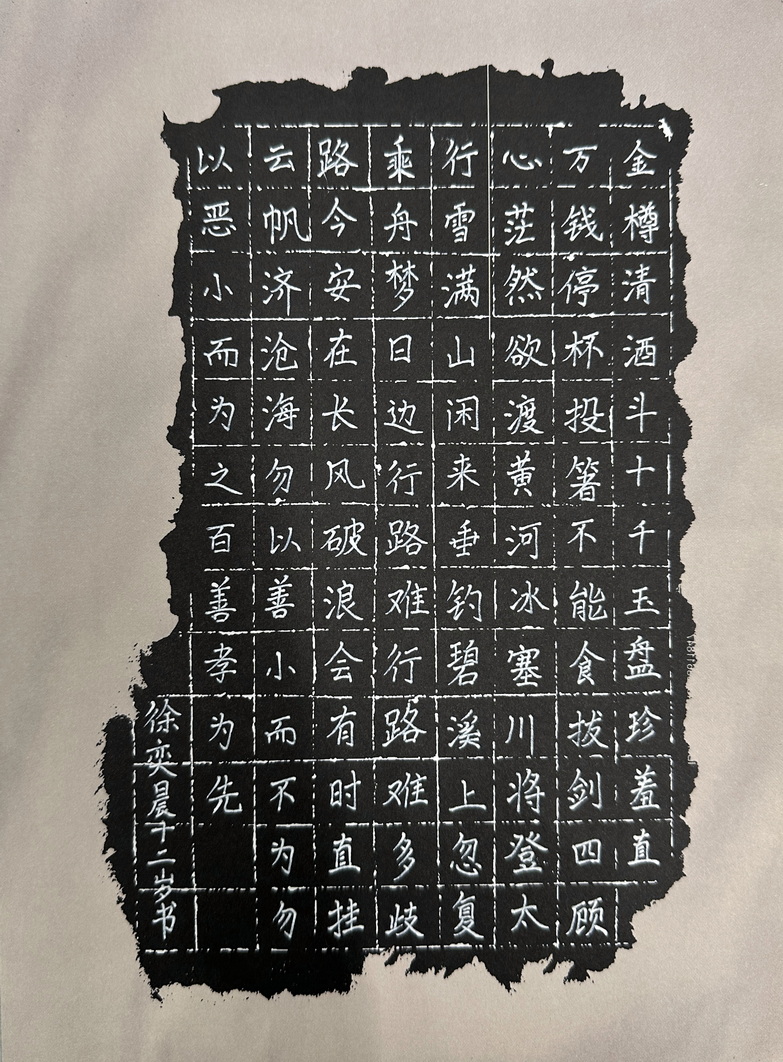 金樽清酒斗十千玉盘珍羞直
万钱停杯投箸不能食拔剑四顾
心茫然欲渡黄河冰塞川将登太
行雪满山闲来垂钓碧溪上忽复
乘舟梦日边行路难行路难多歧
路今安在长风破浪会有时直挂
云帆济沧海勿以善小而不为勿
以恶小而为之百善孝为先
徐奕晨十二岁书